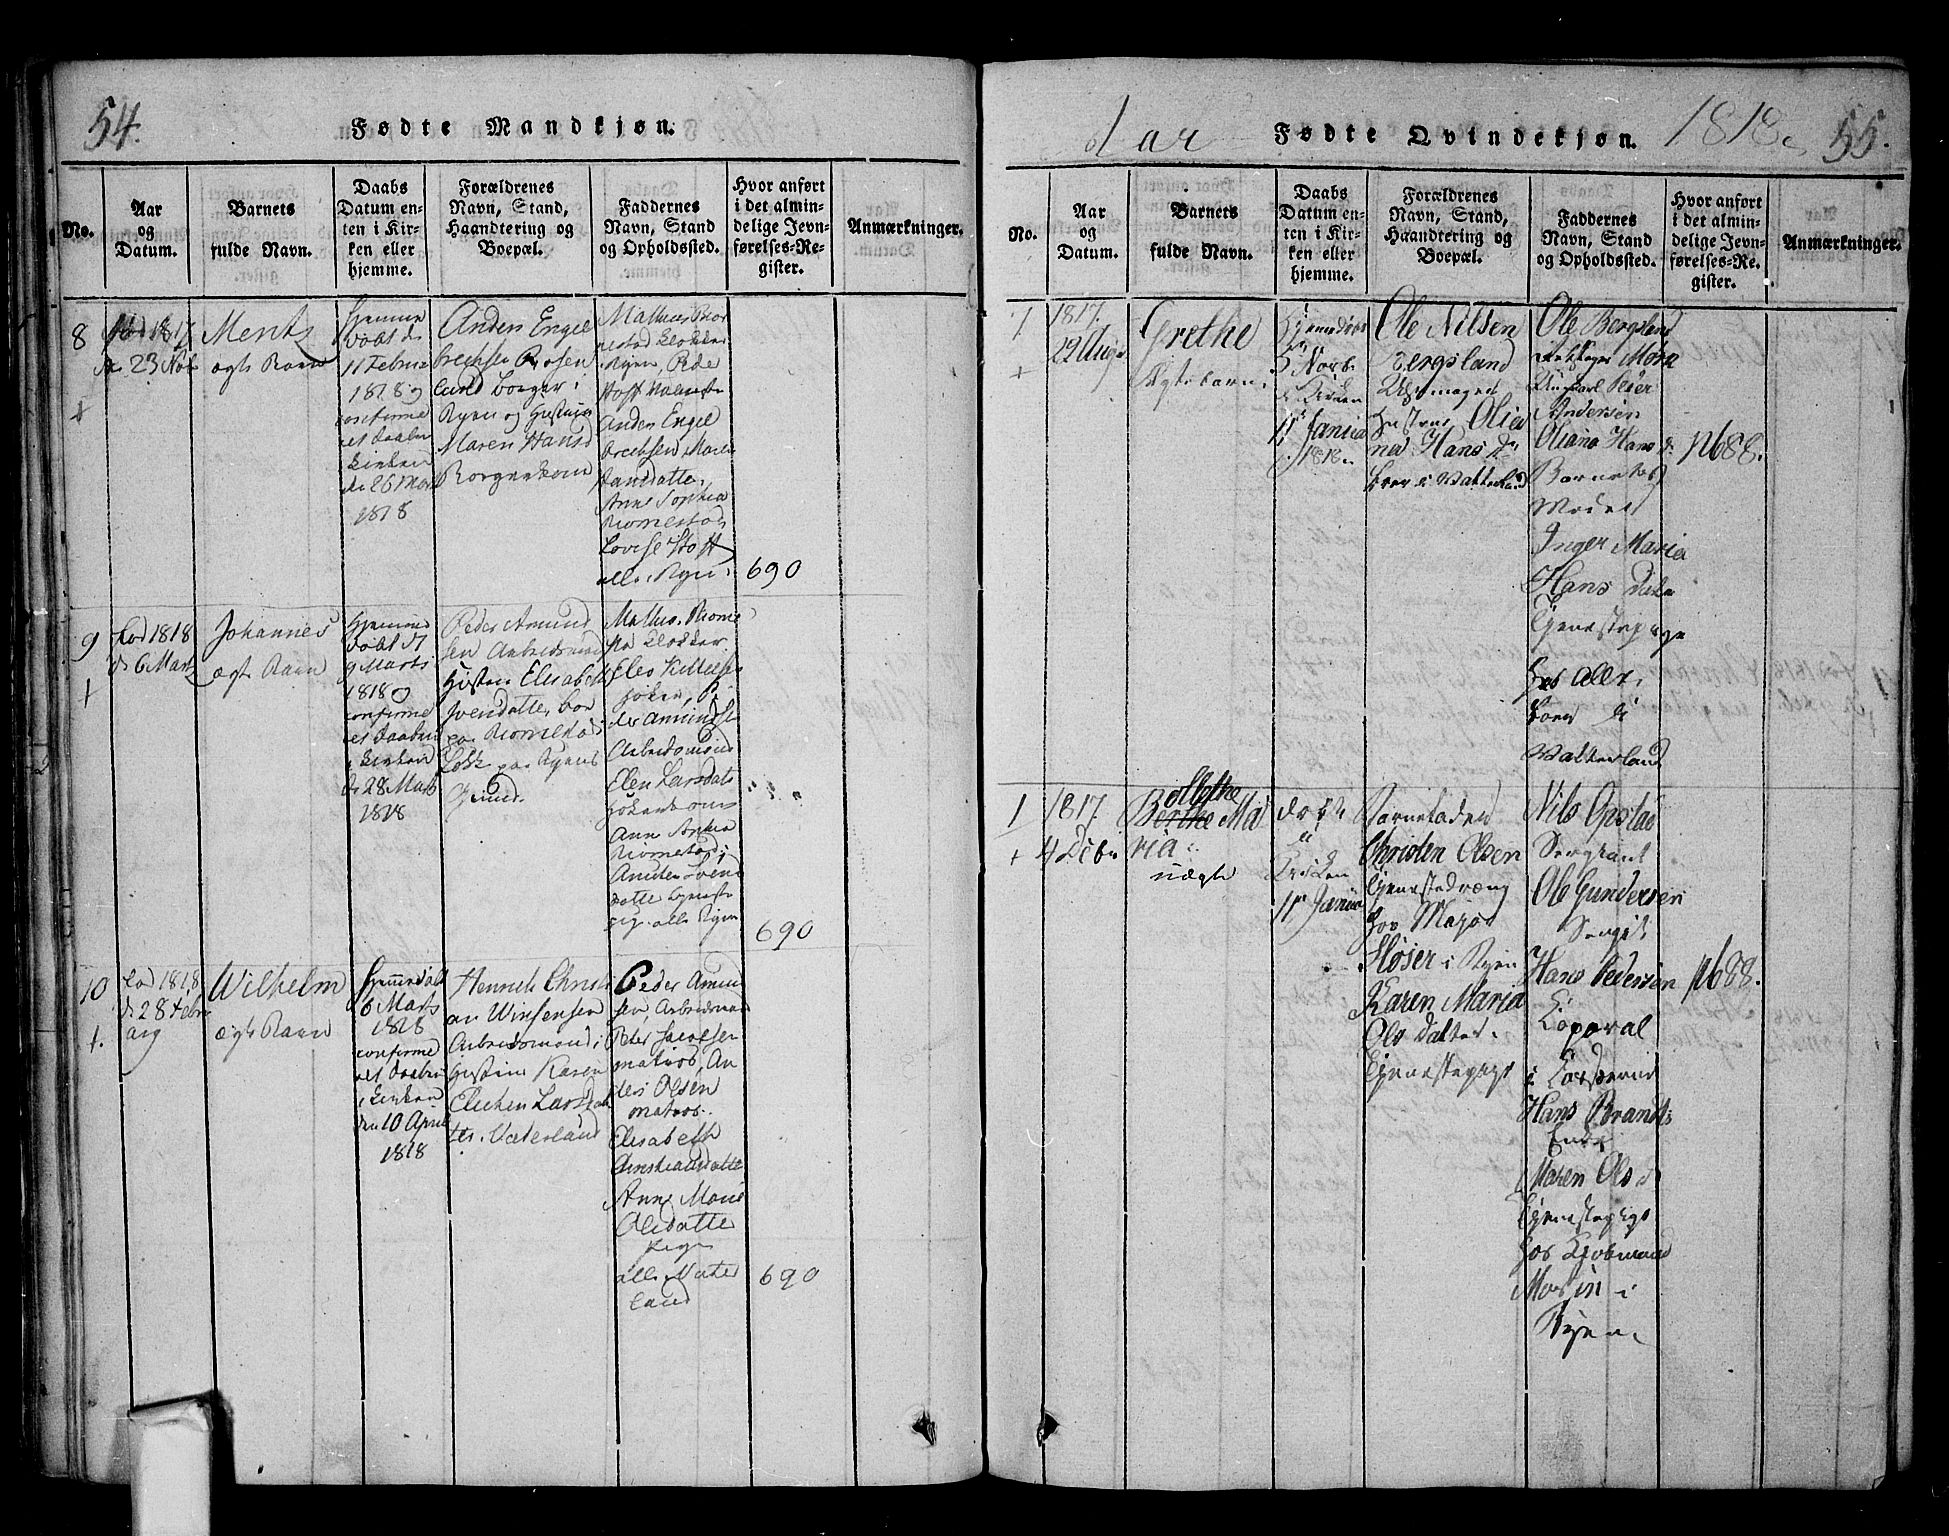 54.
Fødte Mandkjøn.
No.
Aar
og
Datum.
Barnets
fulde Navn.
Daabs
Datum en-
ten i Kir-
ken eller
hjemme.
Forældrenes
Navn, Stand,
Haandtering og
Boepæl.
Faddernes
Navn, Stand
og Opholdssted.
Hvor anført
i det almin-
delige Jevn-
førelses-Re-
gister.
Anmærkninger.
8
1817
23 Nov
+
Ments
ægte Barn
Hjemme
døbt d
11 Februar
1818 og
confirme
ret Daaben
i Kirken
d 26 Mart
1818
Anders Engel
brechsen Rosen
lund borger i
Byen og Hustrue
Maren Hansd
Borgerkone
Mathias
Klokker
i Byen, Peder
Hoff
Anders Engel
brechsen, Maren
Hansdatter,
Anne Sophia
Lovise Hoff
alle i Byen
690
9
+
fød 1818
d 6 Marts
Johannes
ægte Barn
Hjemme
døbt d
9 Marts
1818 og
confirme
ret Daaben
i Kirken
d 28 Marts
1818
Peder Amund
sen Arbeidsmand
Hustru Elisabeth
Svendatter, boe
paa
Løkk paa Byens
Grund.
Mathias
Klokker,
Peder Amundsen
Arbeidsmand
Elen Larsdatt
Ann Sophia
Svend
datter
pige alle i Byen
690
10
+.
fød 1818
d 28 Febru
arij
Wilhelm
ægte Barn
Hjemmedøbt
6 Marts
1818
confirme
ret Daaben
i Kirken
den 10 April
1818
Henrich Christi
an Winsensen
Arbeidsmand i
Hustrue Karen
Larsdat
ter i Vaterland
Peder Amun
sen, Arbeidsmand
Peter Jacobsen
matros, An
ders Olsen
matros.
Elisabeth
Christiansdatte
Anne Marie
Olesdatter
piger
alle i Vater
land
690
d Aar
Fødte Qvindekjøn.
1818.
55.
No.
Aar
og
Datum.
Barnets
fulde Navn.
Daabs
Datum en-
ten i Kir-
ken eller
hjemme.
Forældrenes
Navn, Stand,
Haandtering og
Boepæl.
Faddernes
Navn, Stand
og Opholdssted.
Hvor anført
i det almin-
delige Jevn-
førelses-Re-
gister.
Anmærkninger.
1
+
1817.
22 Aug
Grethe
Ægtebarn.
Hjemedøbt
5 Novb.
i Kirken
11 Janua
1818.
Ole Nilsen
Bergsland
Uhrmager
Hustrue Olia
na Hans Dr
boer i Vatterland
Ole Bergsland
Peter
Andersen
Oliana Hans D.
Barnets
Moder
Inger Maria
Hans Datter
Tjenestepige
hos Alle
boer i
Vatterland
p 688.
1
+
1817.
4 Decb.
Ollethe
Berthe Ma
ria
uægte
Døbt
i
Kirken
11 Janua
Barnefader
Christen Olsen
Tjenestedreng
hos Major
Høser i Byen
Karen Maria
Ols Datter.
Tjenestepige
Nils Opstad
Sergeant
Ole Gundersen
Sergt.
Hans Pedersen
Koporal
i
Hans Brandt
Maren Ols D
Tjenestepige
hos Kjøbmand
Mossin i
Byen
p 688.